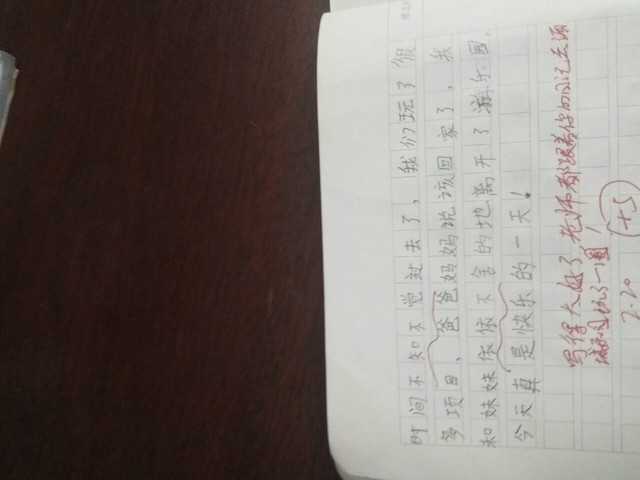 时间不知不觉过去了，我们玩了很
多项目，爸爸妈妈说该回家了，我
和妹妹依依不舍的地离开了游乐园，
今天真是快乐的一天！
写得太好了，老师都跟着你的日记去游
乐园玩了一圈！
+5
2.20